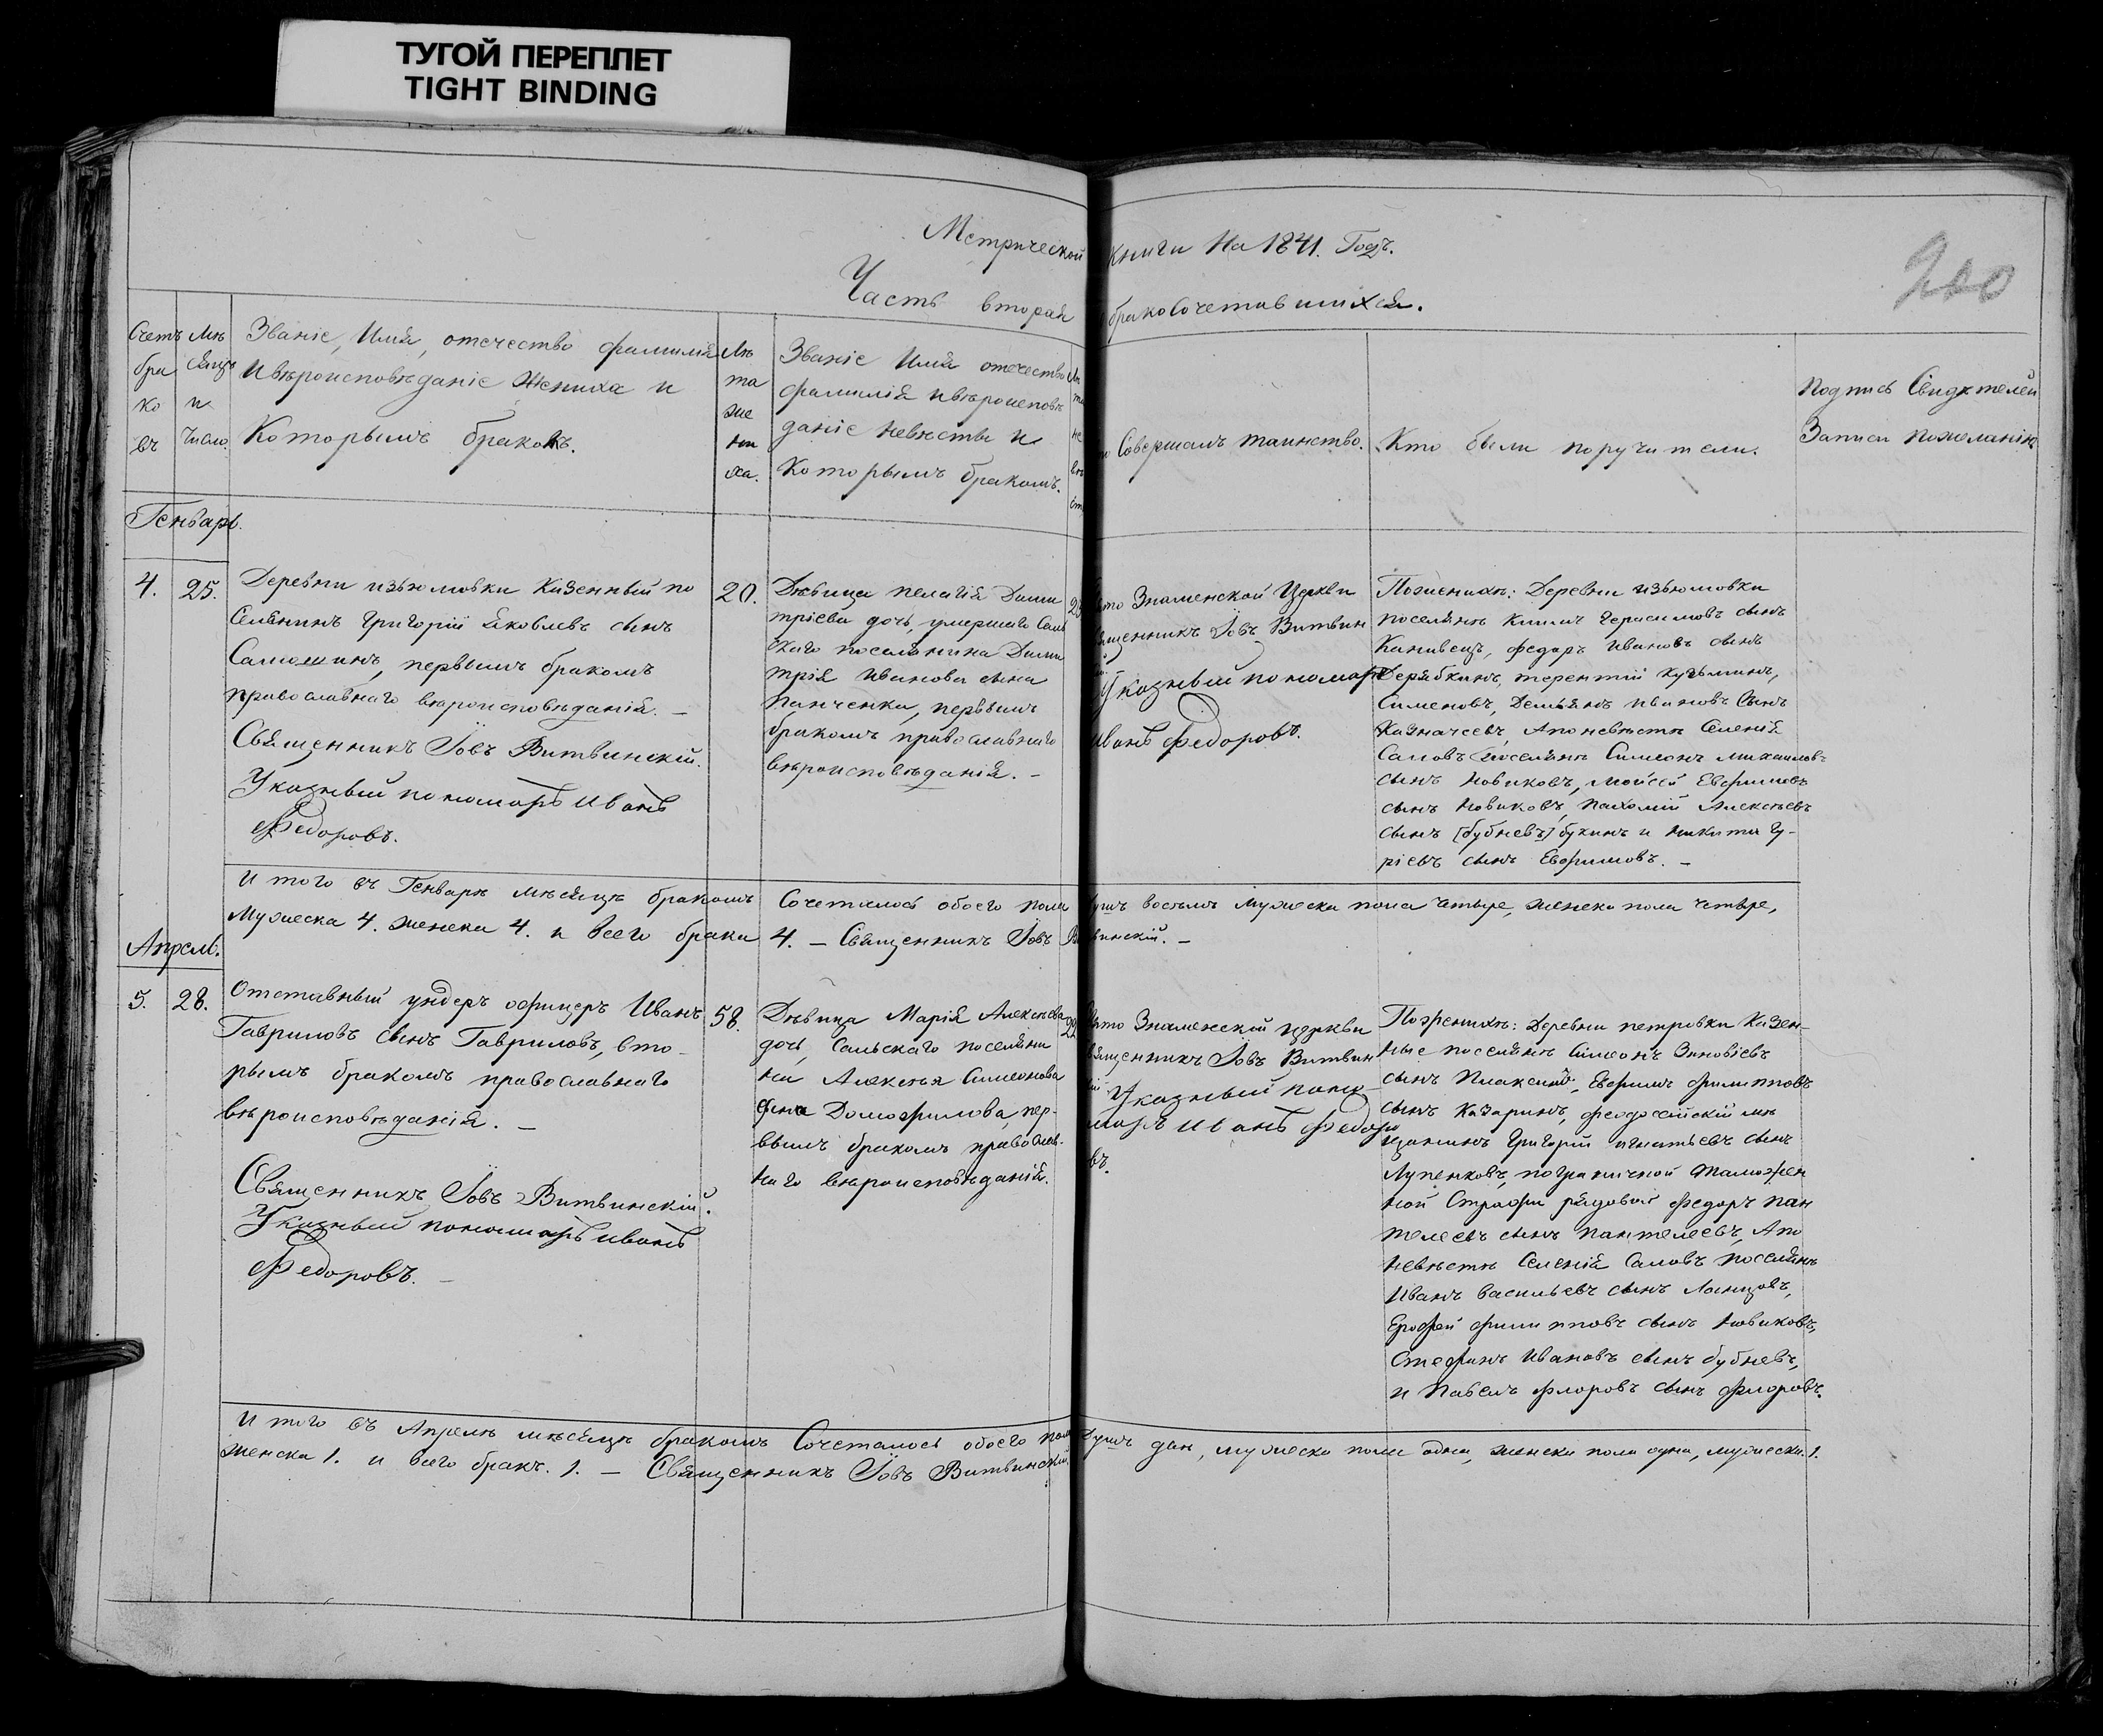 ТУГОЙ ПЕРЕПЛЕТ
TIGHT BINDING
Метрической книги на 1841. Годъ.
Часть вторая бракосочетавшихся.
200
Счетъ
бра
ко
въ
Мѣ
сяцъ
и
число.
Званіе, Имя, отечество фамилія
и вѣроисповѣданіе жениха и
Которымъ бракомъ.
Лѣ
та
же
ни
ха.
Званіе Имя отечество
фамилія и вѣроисповѣ
даніе невѣсты и
Которымъ бракомъ.
Совершалъ таинство.
Кто были поручители.
Подпись Свидѣтелей
Записи по желанію.
Генварь.
4.
25.
Деревни изъюмовки Казенный по
селянинъ Григорій Яковлевъ сынъ
Самошинъ, первымъ бракомъ
православнаго вѣроисповѣданія. —
Священникъ Іовъ Витвинскій.
Указный пономарь Иванъ
Федоровъ.
20.
Дѣвица пелагія Дими
тріева дочь, умершаго Сель
скаго поселянина Дими
трія Иванова сына
Панченка, первымъ
бракомъ православнаго
вѣроисповѣданія. —
Знаменской Церкви
священникъ Іовъ Витвин
Указный пономарь
Иванъ Федоровъ.
По женихѣ: Деревни изъюмовки
поселянѣ Климъ Герасимовъ сынъ
Канивецъ, федоръ Ивановъ сынъ
Дерябкинъ, терентій Кузьминъ,
Сименовъ, Демьянъ Ивановъ Сынъ
Казначеевъ, А по невѣстѣ Селенія
Саловъ поселянѣ Симеонъ Михаиловъ
сынъ Новиковъ, Мойсей Евфимовъ
сынъ Новиковъ, Пахомій Алексѣевъ
сынъ [бубневъ] букинъ и Никита Гу-
ріевъ сынъ Евфимовъ. —
Итого въ Генварѣ мѣсяцѣ бракомъ Сочеталось обоего пола душъ восемь мужеска пола четыре, женска пола четыре,
Мужеска 4. женска 4. и всего брака 4. — Священникъ Іовъ Витвинскій. —
Апрель.
5.
28.
Отставный ундеръ офицеръ Иванъ
Гавриловъ сынъ Гавриловъ, вто-
рымъ бракомъ православнаго
вѣроисповѣданія. —
Священникъ Іовъ Витвинскій.
Указный пономарь Иванъ
Федоровъ. —
58.
Дѣвица Марія Алексѣева
дочь, Сельскаго поселяни
на Алексѣя Симеонова
сына Домофилова, пер-
вымъ бракомъ православ-
наго вѣроисповѣданія.
Знаменской церкви
священникъ Іовъ Витвин
Указный поно
марь Иванъ Федоро
въ.
По женихѣ: Деревни петровки Казен-
ные поселянѣ Симеонъ Зиновіевъ
сынъ Плаксинъ, Евфимъ филипповъ
сынъ Казаринъ, феодосійскій мѣ
щанинъ Григорій игнатьевъ сынъ
Лупенковъ, пограничной таможен
ной Стражи рядовой федоръ пан
телеевъ сынъ пантелеевъ, А по
невѣстѣ Селенія Саловъ поселянѣ
Иванъ васильевъ сынъ
Ерофей филипповъ сынъ Новиковъ,
Стефанъ Ивановъ сынъ бубневъ,
и павелъ флоровъ сынъ флоровъ.
Итого въ Апрелѣ мѣсяцѣ бракомъ Сочеталось обоего пола душъ двѣ, мужеска пола одна, женска пола одна, мужеска. 1.
женска 1. и всего бракъ. 1. — Священникъ Іовъ Витвинскій.